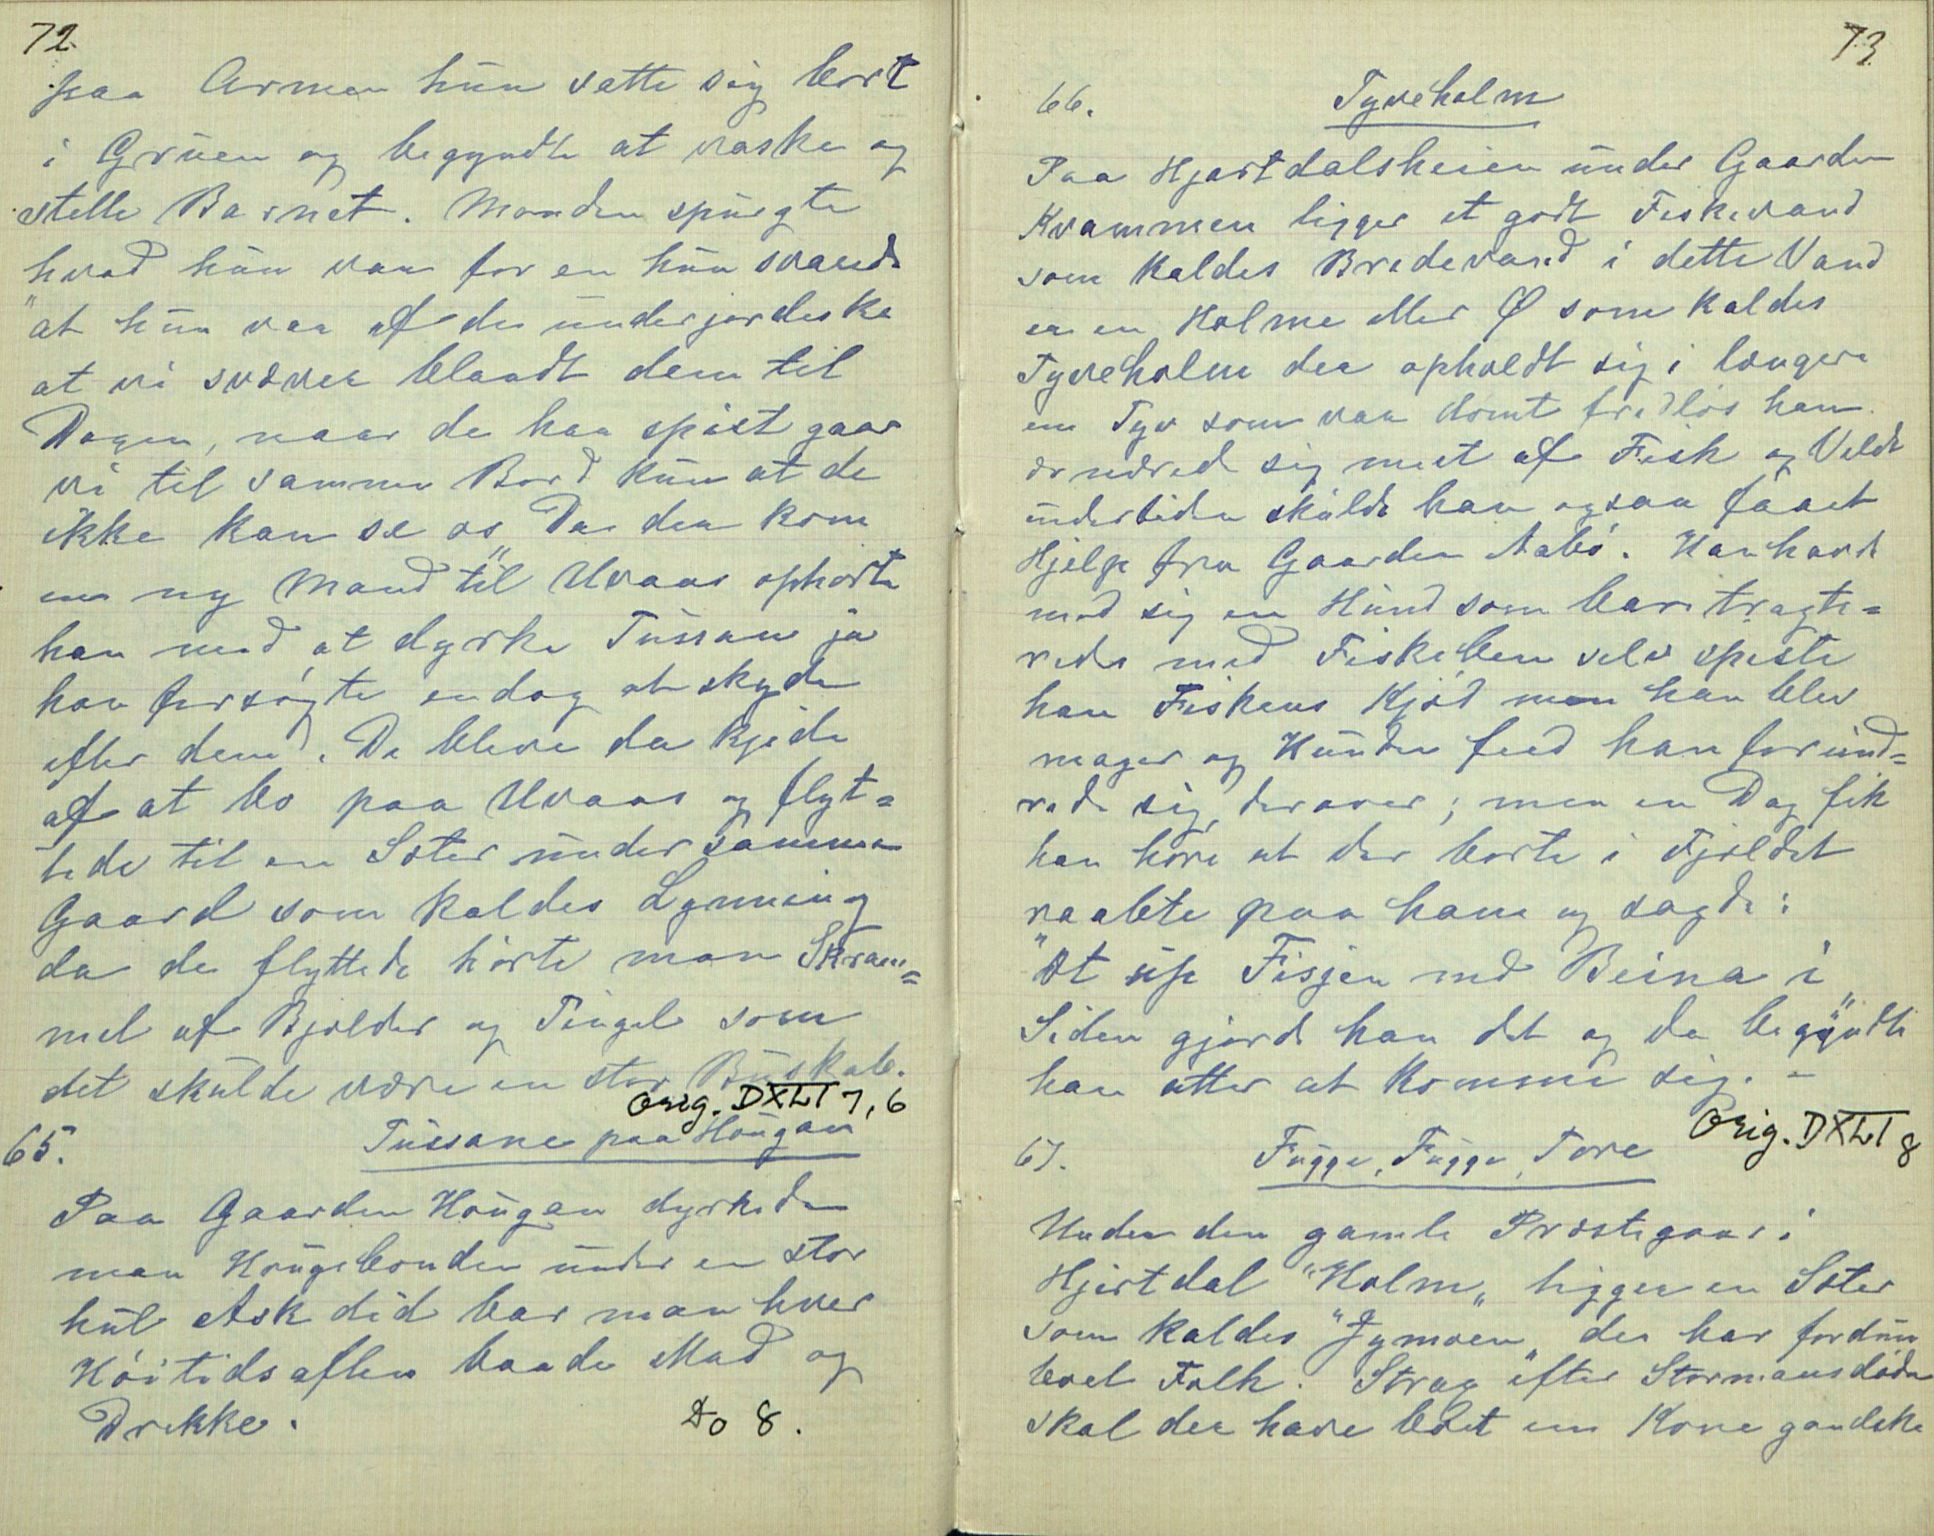 72
paa Armen hun satte sig bort
i Gruen og begyndte at vaske og
stelle Barnet. Manden spurgte
hvad hun var for en hun svarede
"at hun var af de underjordeske
at vi svæver blandt dem til
Dagen, naar de har spist gaar
vi til samme Bord kun at de
ikke kan se os" Da der kom
en ny Mand til Uvaas ophørte
han med at dyrke Tussan ja
han forsøgte endog at skyde
efter dem. De bleve da kjede
af at bo paa Uvaas og flyt=
tede til en Sæter under samme
Gaard som kaldes Lynning
da de flyttede hørte man Skram=
mel af Bjølder og Tingel som
det skulde være en stor Buskab.
Orig. DXLI 7, 6
65. Tussane paa Haugan
Paa Gaarden Haugan dyrkede
man Haugebonden under en stor
hul Ask did bar man hver
Høitidsaften baade Mad og
Drikke.
Do 8.
73
66. Tyveholm
Paa Hjartdalsheien under Gaarden
Kvammen ligger et godt Fiskevand
som kaldes Bredevand i dette Vand
er en Holme eller Ø som kaldes
Tyveholm der opholdt sig i længere
en Tyv som var dømt fredløs han
ernæred sig mest af Fisk og Veldt
undertiden skulde han ogsaa faaet
Hjelp fra Gaarden Aabø. Han havde
med sig en Hund som bare tragte=
rede med Fiskeben selv spiste
han Fiskens Kjød men han blev
mager og Hunden feed han forund=
rede sig derover; men en Dag fik
han høre at der borte i Fjeldet
raabte paa ham og sagde:
"Æt up Fisjen med Beina i"
Siden gjorde han det og da begyndte
han atter at komme sig. –
Orig. DXLI 8
67. Fugge, Fugge, Tore
Under den gamle Præstegaar i
Hjertdal "Holm" ligger en Sæter
som kaldes "Jymoen" der har fordum
boet Folk. Strax efter Stormansdøden
skal der have boet en Kone gandske